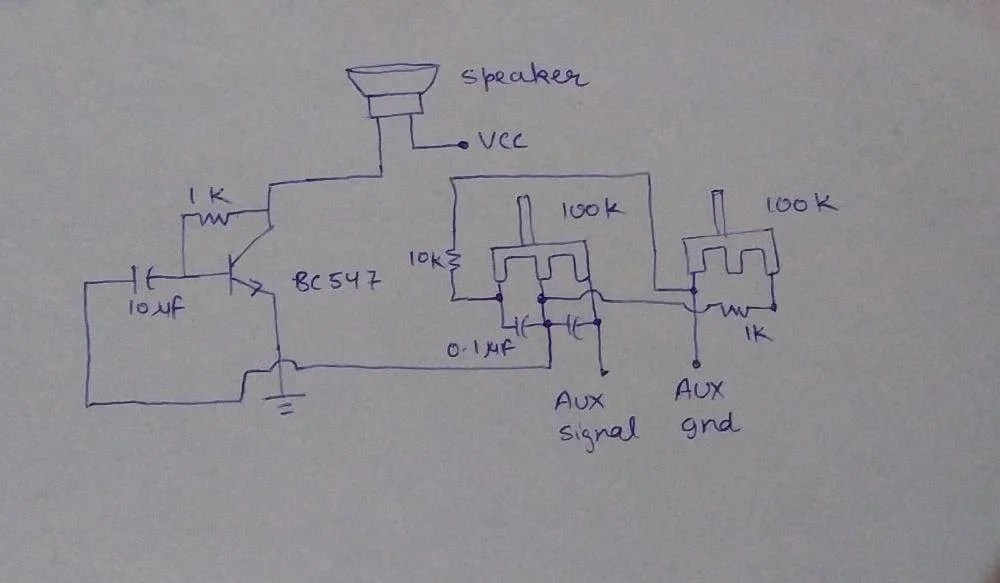 speaker
VCC
1K
100K
100K
10K
BC547
10μF
0.1μF
1K
AUX
signal
AUX
gnd